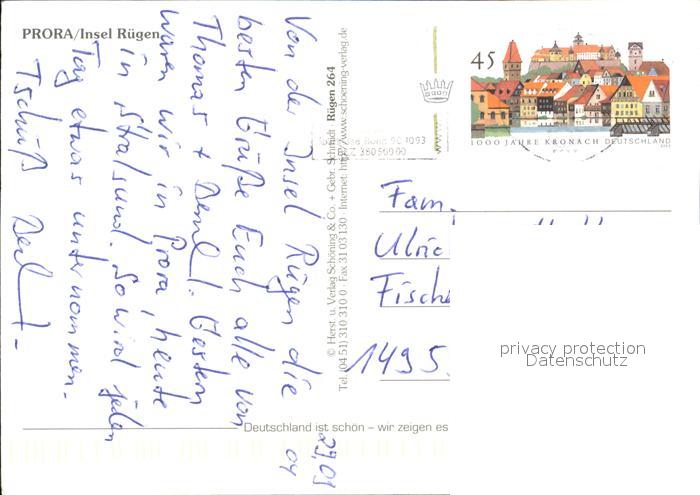 PRORA/Insel Rügen
Von der Insel Rügen die
besten Grüße Euch alle von
Thomas + Bernd. Gestern
waren wir in Prora heute
in Stralsund. So wird jeden
Tag etwas unternommen.
Tschüß
29.09
04
© Herst. u. Verlag Schöning & Co. + Gebr. Schmidt Rügen 264
Tel. (0451) 310 310 0 · Fax 31 03 130 · Internet: http://www.schoening-verlag.de
45
1000 JAHRE KRONACH DEUTSCHLAND
Fam.
Ulric
Fische
1495
privacy protection
Datenschutz
Deutschland ist schön – wir zeigen es